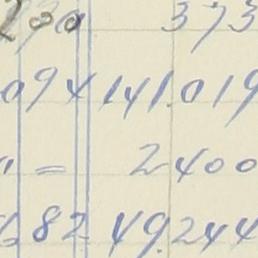 200 373
094 141.019
" = 2400
682 49.244